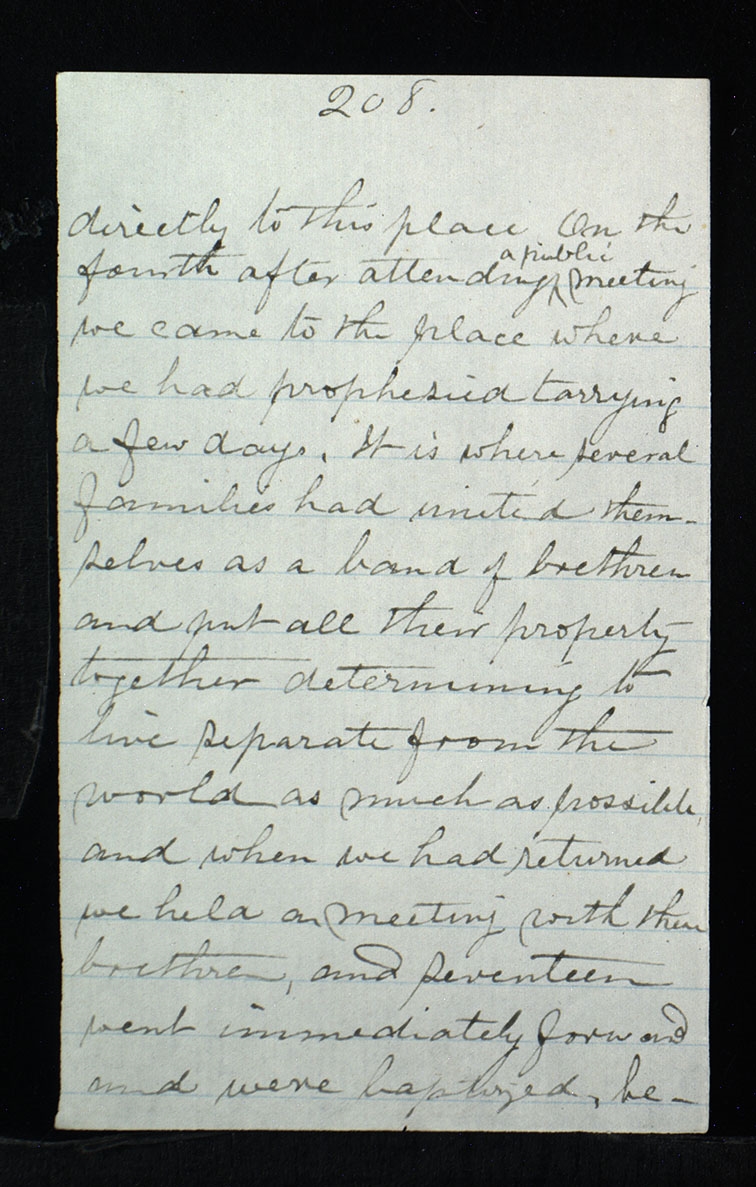 208.
directly to this place On the
a public
fourth after attending ^ meeting
we came to the place where
we had prophesied tarrying
a few days. It is where several
families had united them-
selves as a band of brethren
and put all their property
together determining to
live separate from the
world as much as possible,
and when we had returned
we held a meeting with these
brethren, and seventeen
went immediately forward
and were baptized, be-